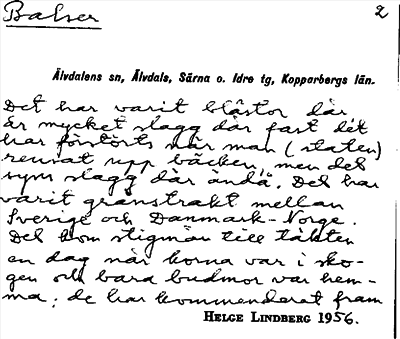 Balser 2
Älvdalens sn, Älvdals, Särna o. Idre tg, Kopparbergs län.
Det har varit blästor där,
är mycket slagg där fast det
har förstörts när man (staten)
rensat upp bäcken, men det
syns slagg där ändå. Det har
varit gränstrakt mellan
Sverige och Danmark-Norge.
Det kom stigmän till täkten
en dag när korna var i sko-
gen och bara budmor var hem-
ma; de har kommenderat fram
HELGE LINDBERG 1956.